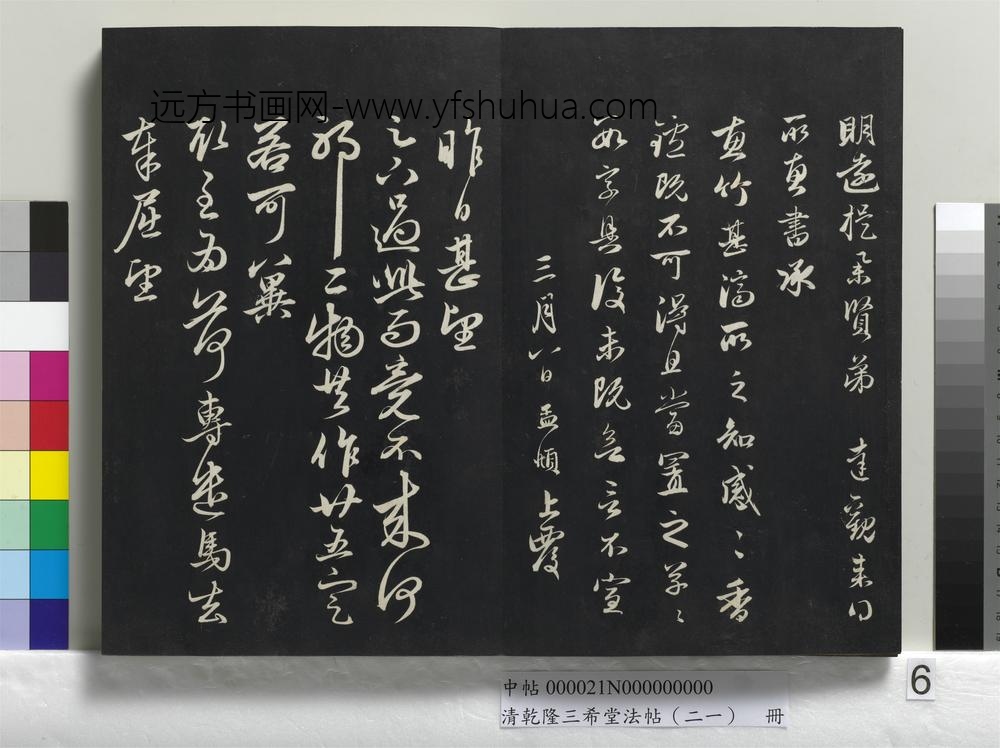 远方书画网-www.yfshuhua.com
明遠提舉賢弟 達觀來得
所惠書承
惠竹甚濟所之知感〻香
鑪既不可得且當置之草〻
數字具復未既言不宣
三月八日孟頫上覆
昨日甚望
足下過此而竟不來何
耶二物共作廿五定
若可以
主為荷專遣馬去
奉屈望
中帖 000021N000000000
清乾隆三希堂法帖（二一） 冊
6